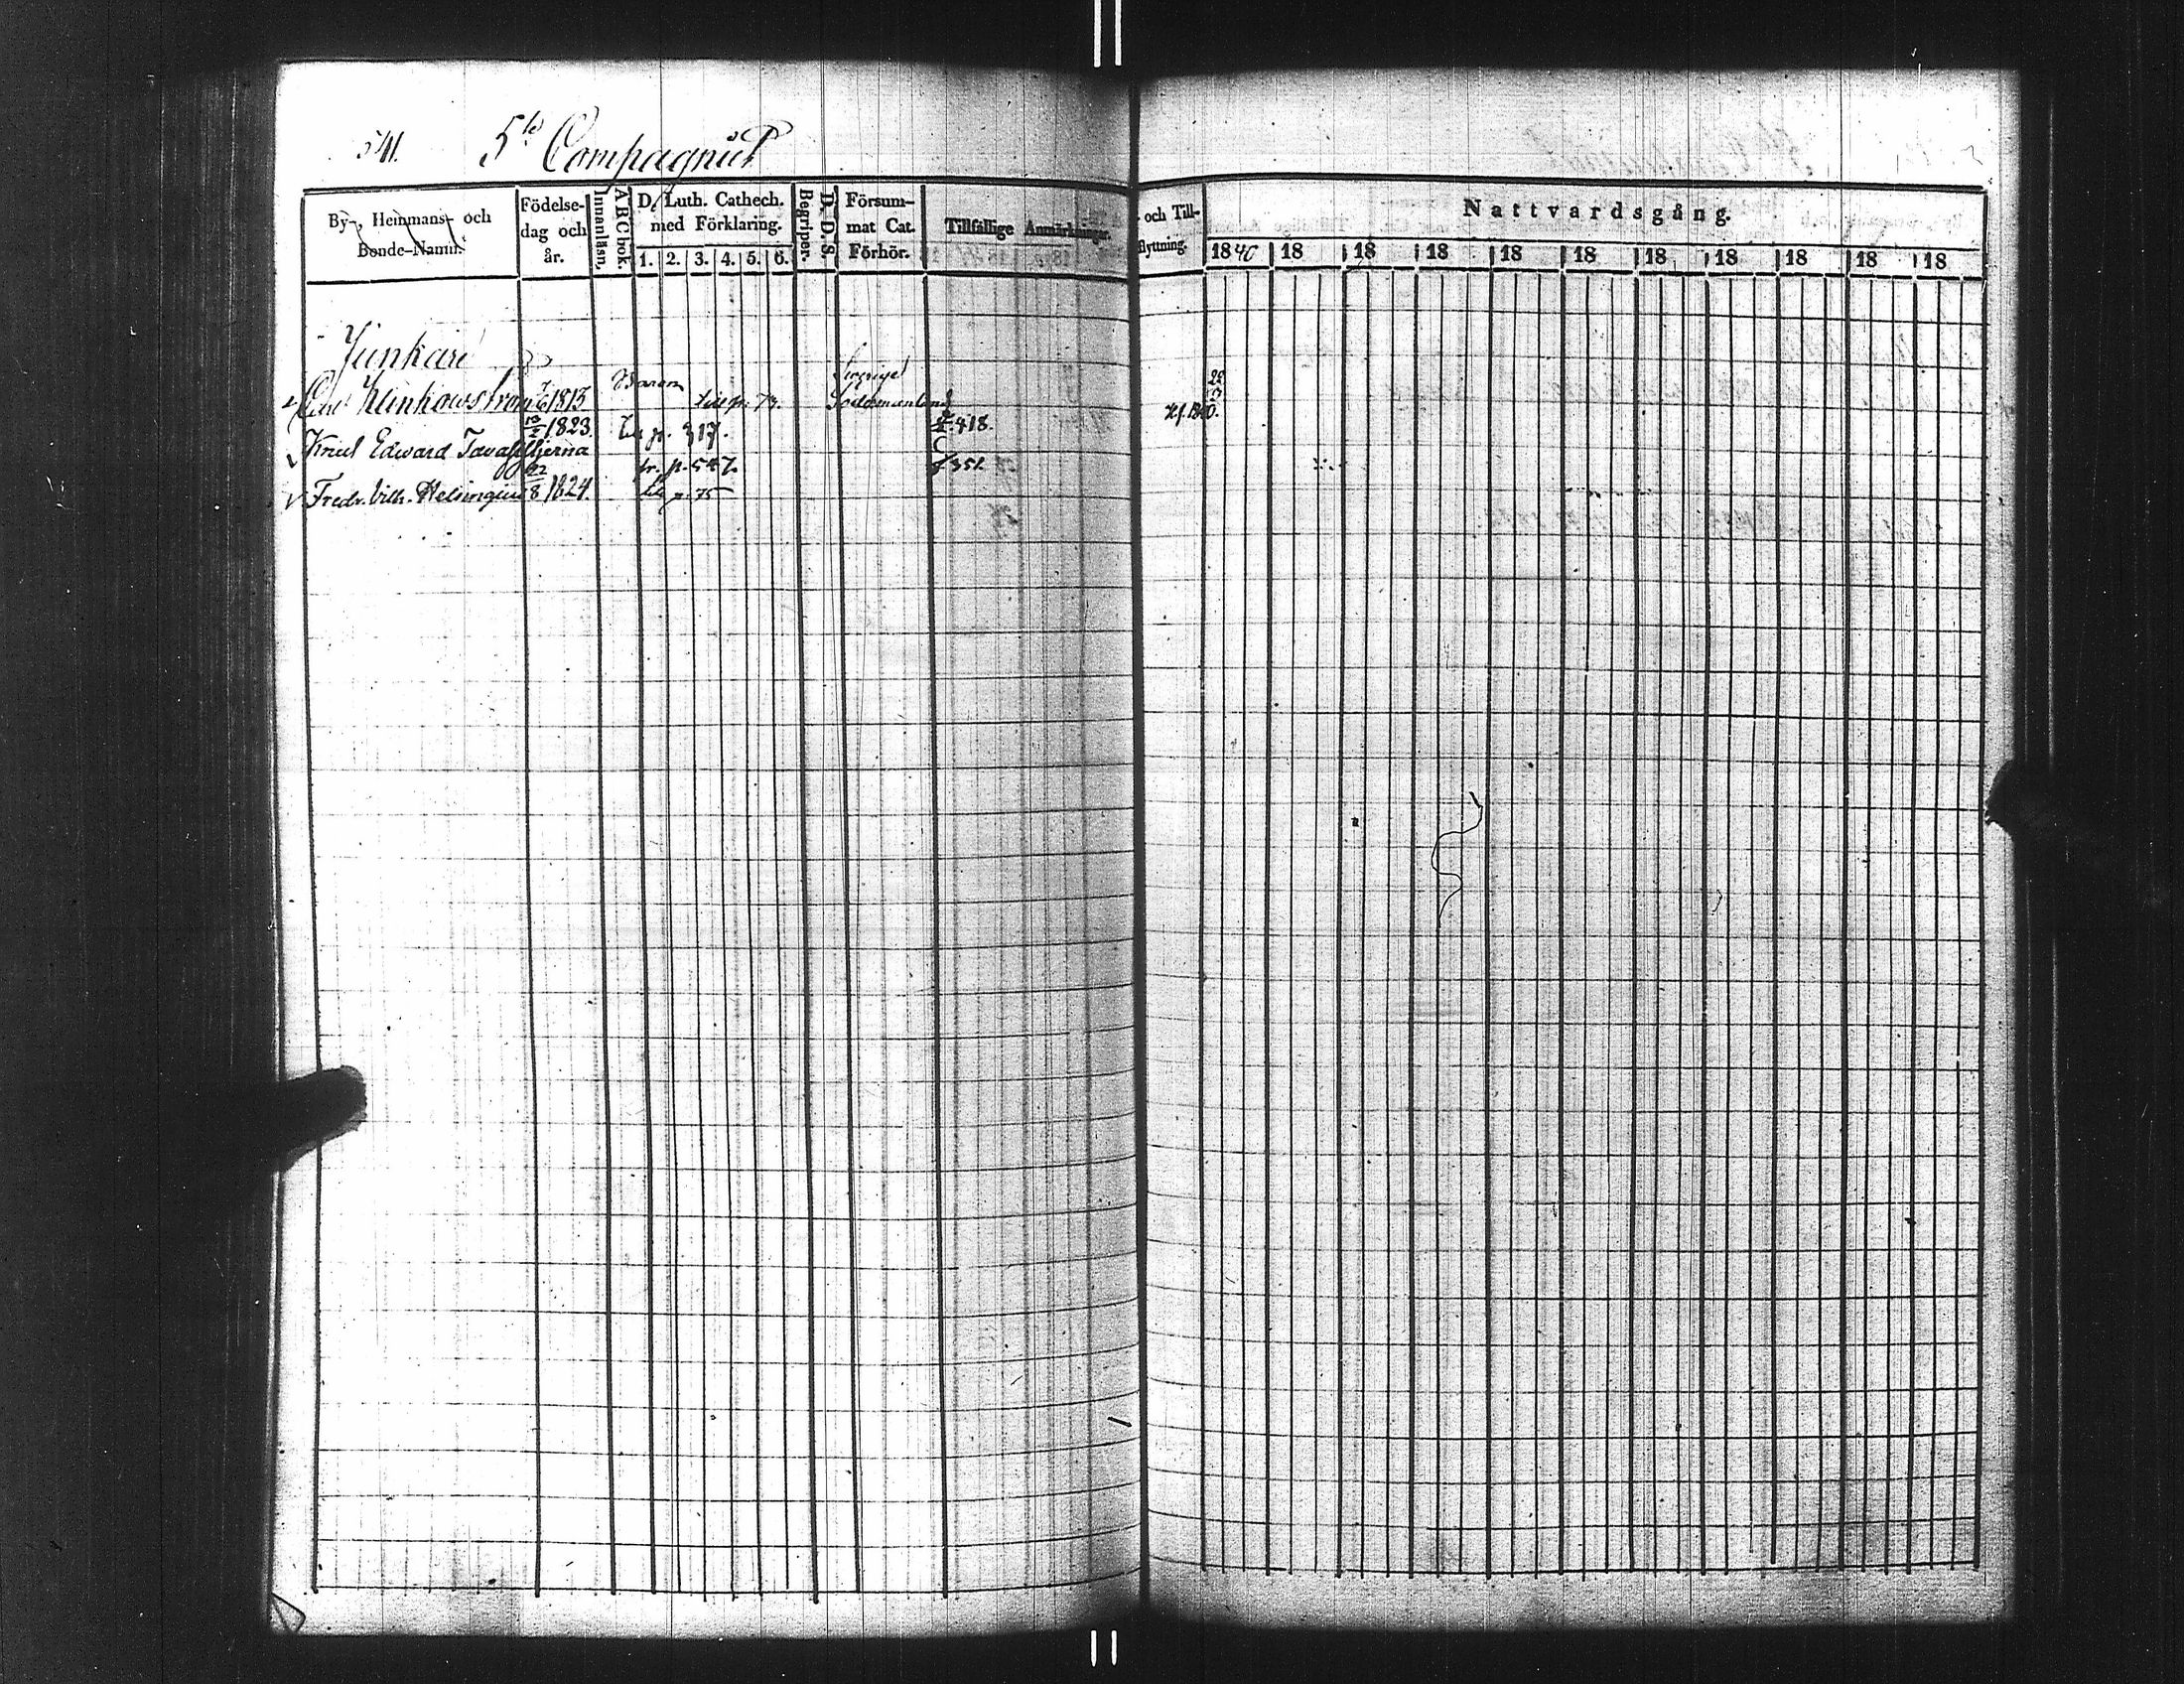 541. 5te Compagniet
By-, Hemmans- och Bonde-Namn.
Födelse-dag och år.
Innanläsn.
ABC bok.
D. Luth. Cathech. med Förklaring.
1. 2. 3. 4. 5. 6.
Begriper.
D. D. S.
Försum-mat Cat. Förhör.
Tillfällige Anmärkningar.
och Till-flyttning.
Nattvardsgång.
1840 18 18 18 18 18 18 18 18 18 18
Junkare
Carl Klinkowström 1815 Baron till p. 73. Sverige Södermanland
Knut Edward Tavaststjerna 13/2 1823. Till p. 317. 418.
Fredr. Vilh. Helsingius 22/8 1824. fr. p. 547. till p. 75 351